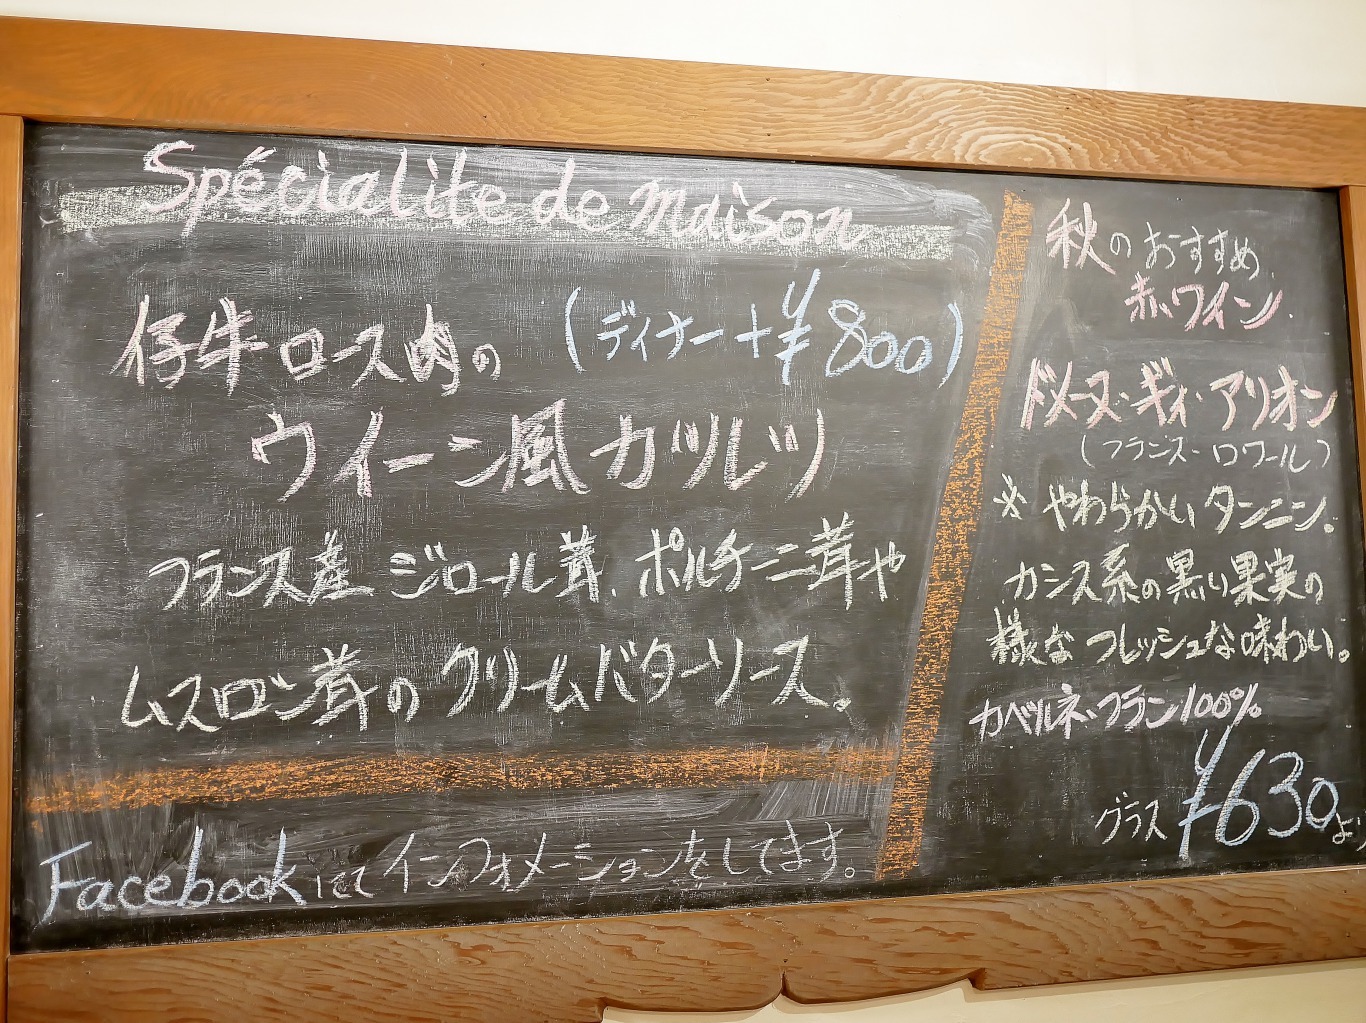 Spécialite de maison
仔牛ロース肉の (ディナー+¥800)
ウイーン風カツレツ
フランス産 ジロール茸、ポルチーニ茸や
ムスロン茸の クリームバターソース。
Facebookにて インフォメーションをしてます。
秋の おすすめ
赤ワイン
ドメーヌ・ギィ・アリオン
(フランス・ロワール)
※ やわらかい タンニン。
カシス系の黒い果実の
様な フレッシュな味わい。
カベルネ・フラン100%
グラス ¥630より